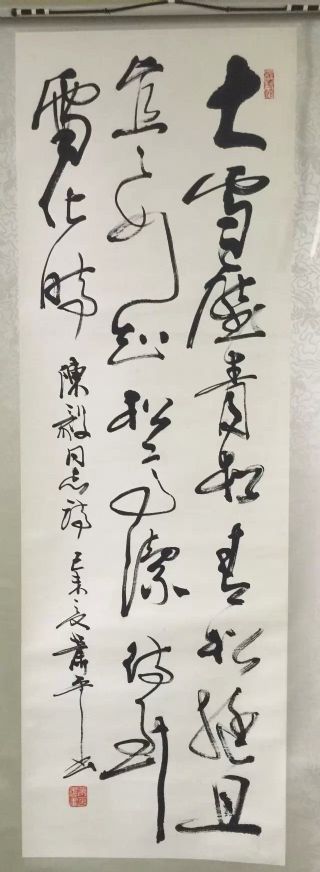 大雪壓青松青松挺且
直要知松高潔待到
雪化時
陳毅同志詩己未夏蕭平书